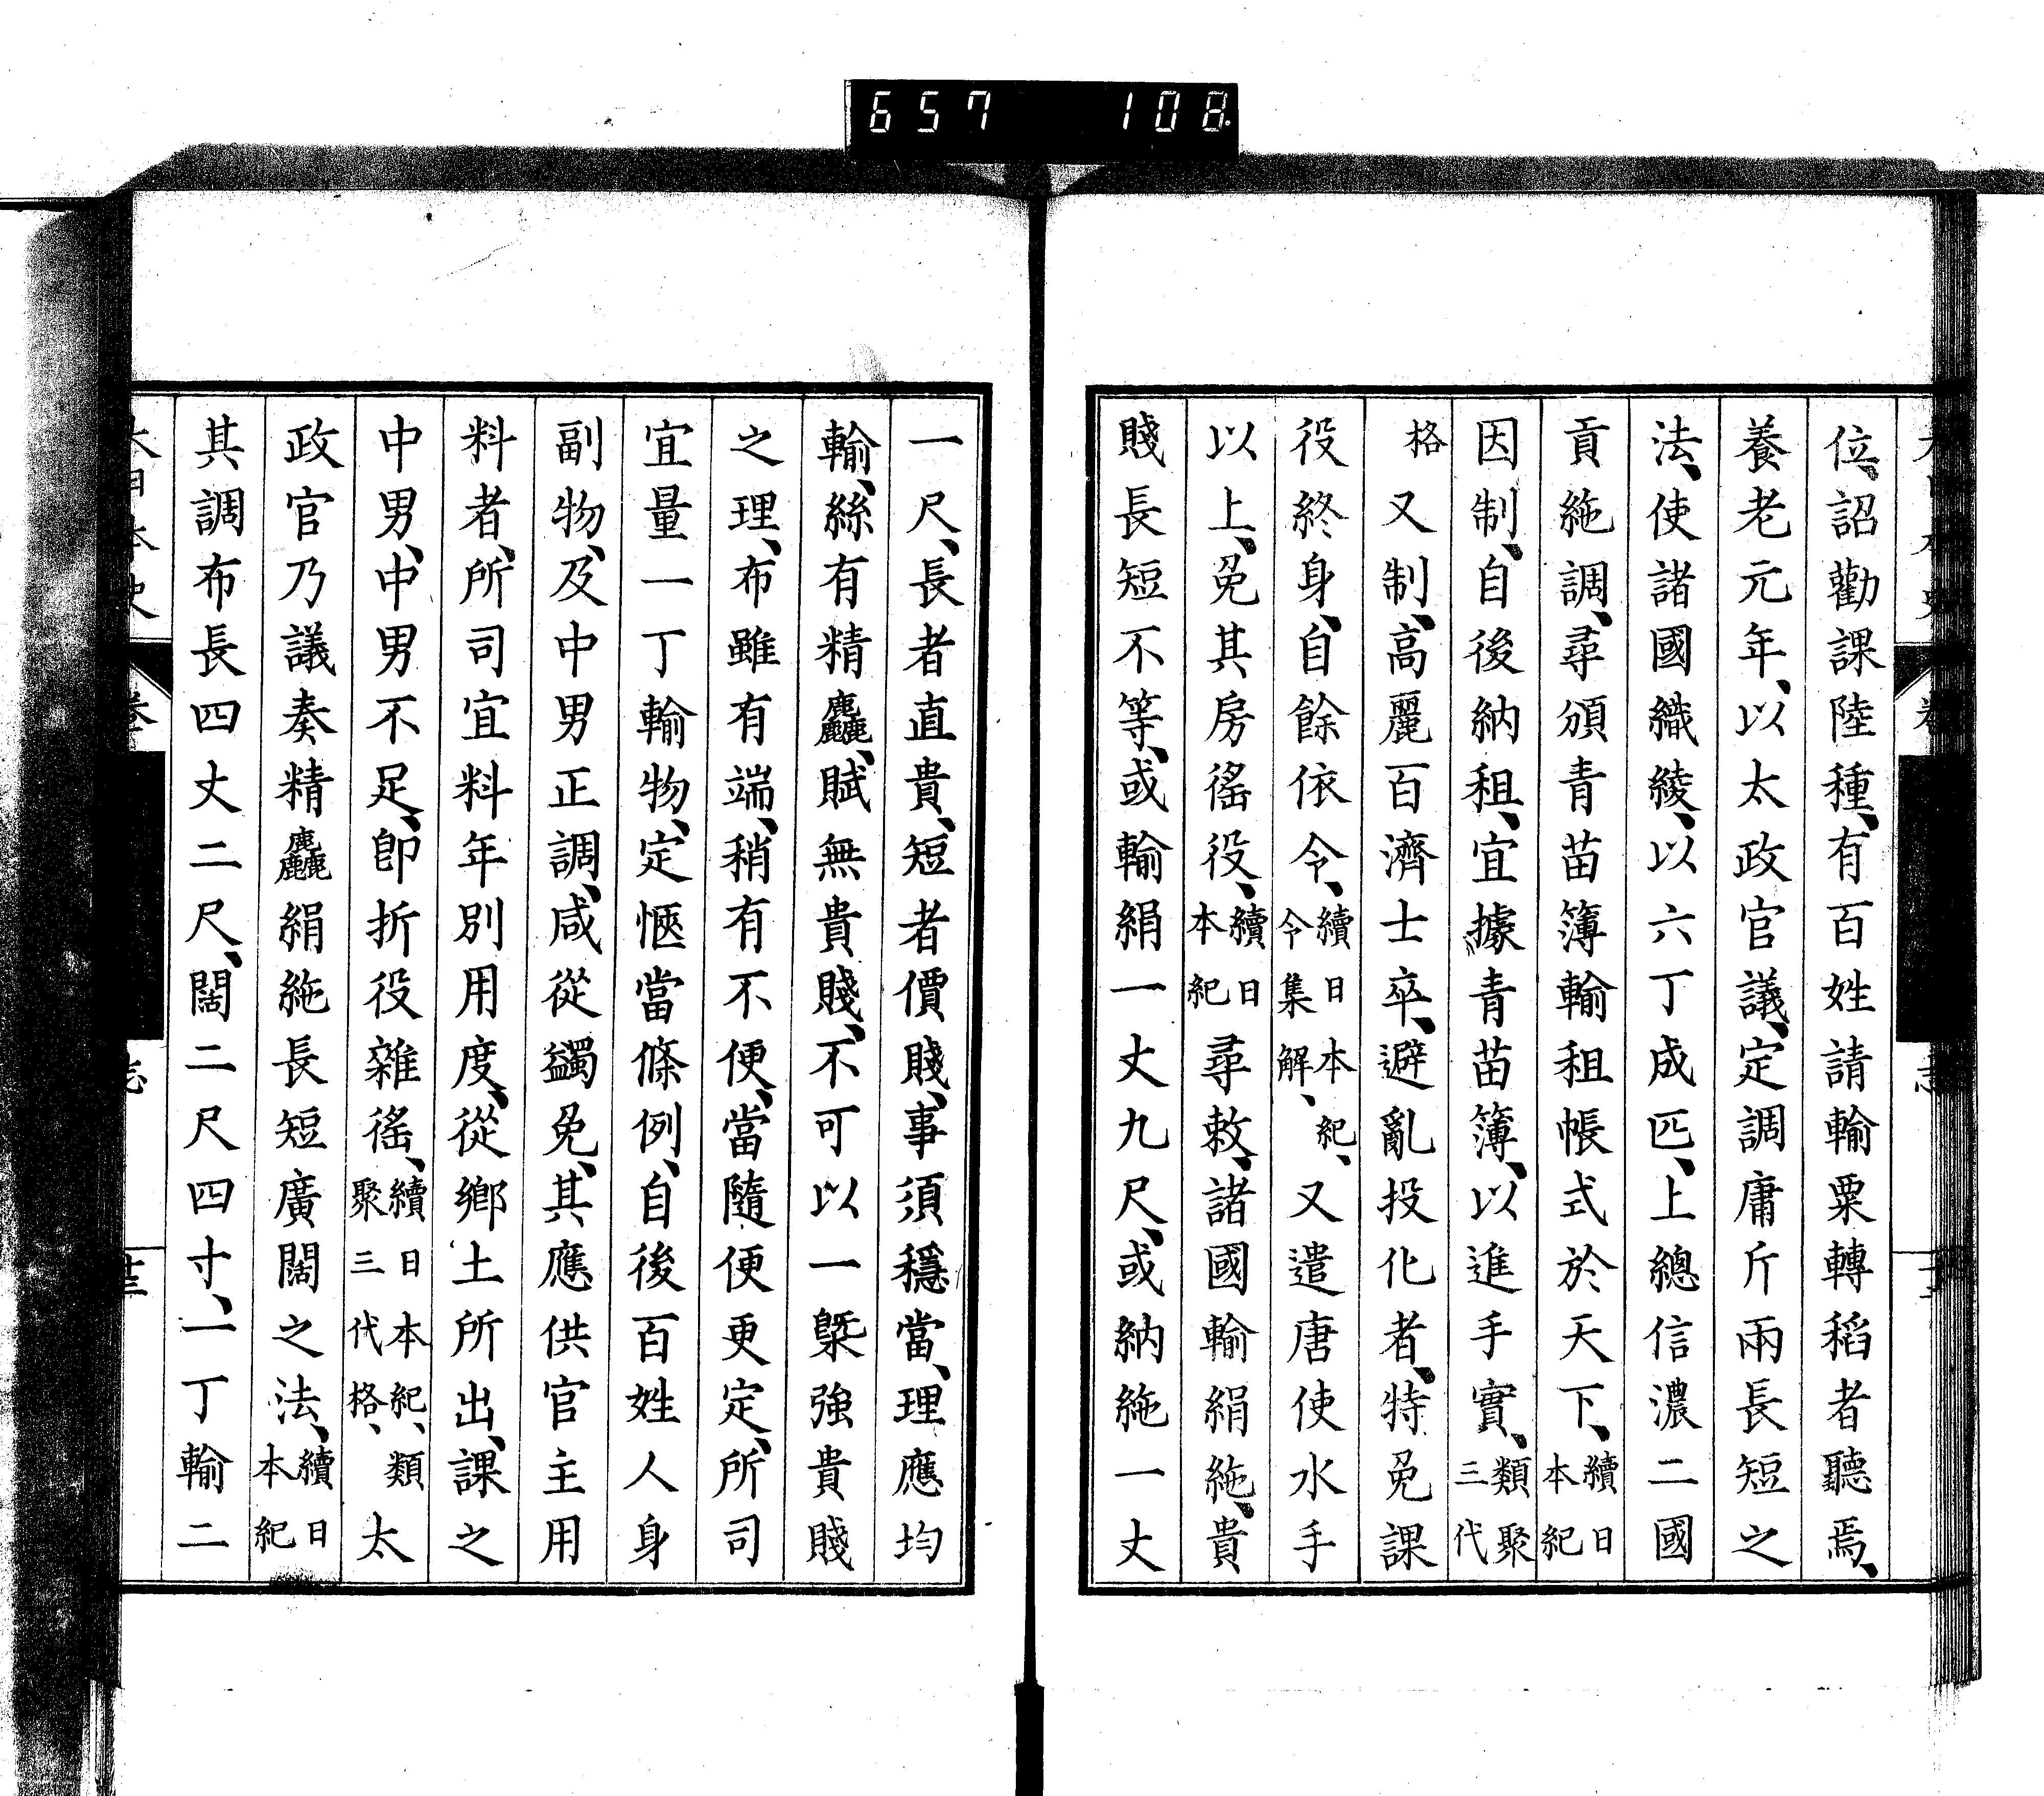 657 108
位、詔勸課陸種、有百姓請輸粟轉稻者聽焉、
養老元年、以太政官議、定調庸斤兩長短之
法、使諸國織綾、以六丁成匹、上總信濃二國
貢絁調、尋頒青苗簿輸租帳式於天下、續日本紀
因制、自後納租、宜據青苗簿、以進手實、類聚三代
格又制、高麗百濟士卒、避亂投化者、特免課
役終身、自餘依令、續日本紀、令集解、又遣唐使水手
以上、免其房徭役、續日本紀尋敕、諸國輸絹絁、貴
賤長短不等、或輸絹一丈九尺、或納絁一丈
一尺、長者直貴、短者價賤、事須穩當、理應均
輸、絲有精麤、賦無貴賤、不可以一槩強貴賤
之理、布雖有端、稍有不便、當隨便更定、所司
宜量一丁輸物、定愜當條例、自後百姓人身
副物、及中男正調、咸從蠲免、其應供官主用
料者、所司宜料年別用度、從鄉土所出、課之
中男、中男不足、卽折役雜徭、續日本紀、類聚三代格、太
政官乃議奏精麤絹絁長短廣闊之法、續日本紀
其調布長四丈二尺、闊二尺四寸、一丁輸二
大日本史 卷 志 十三